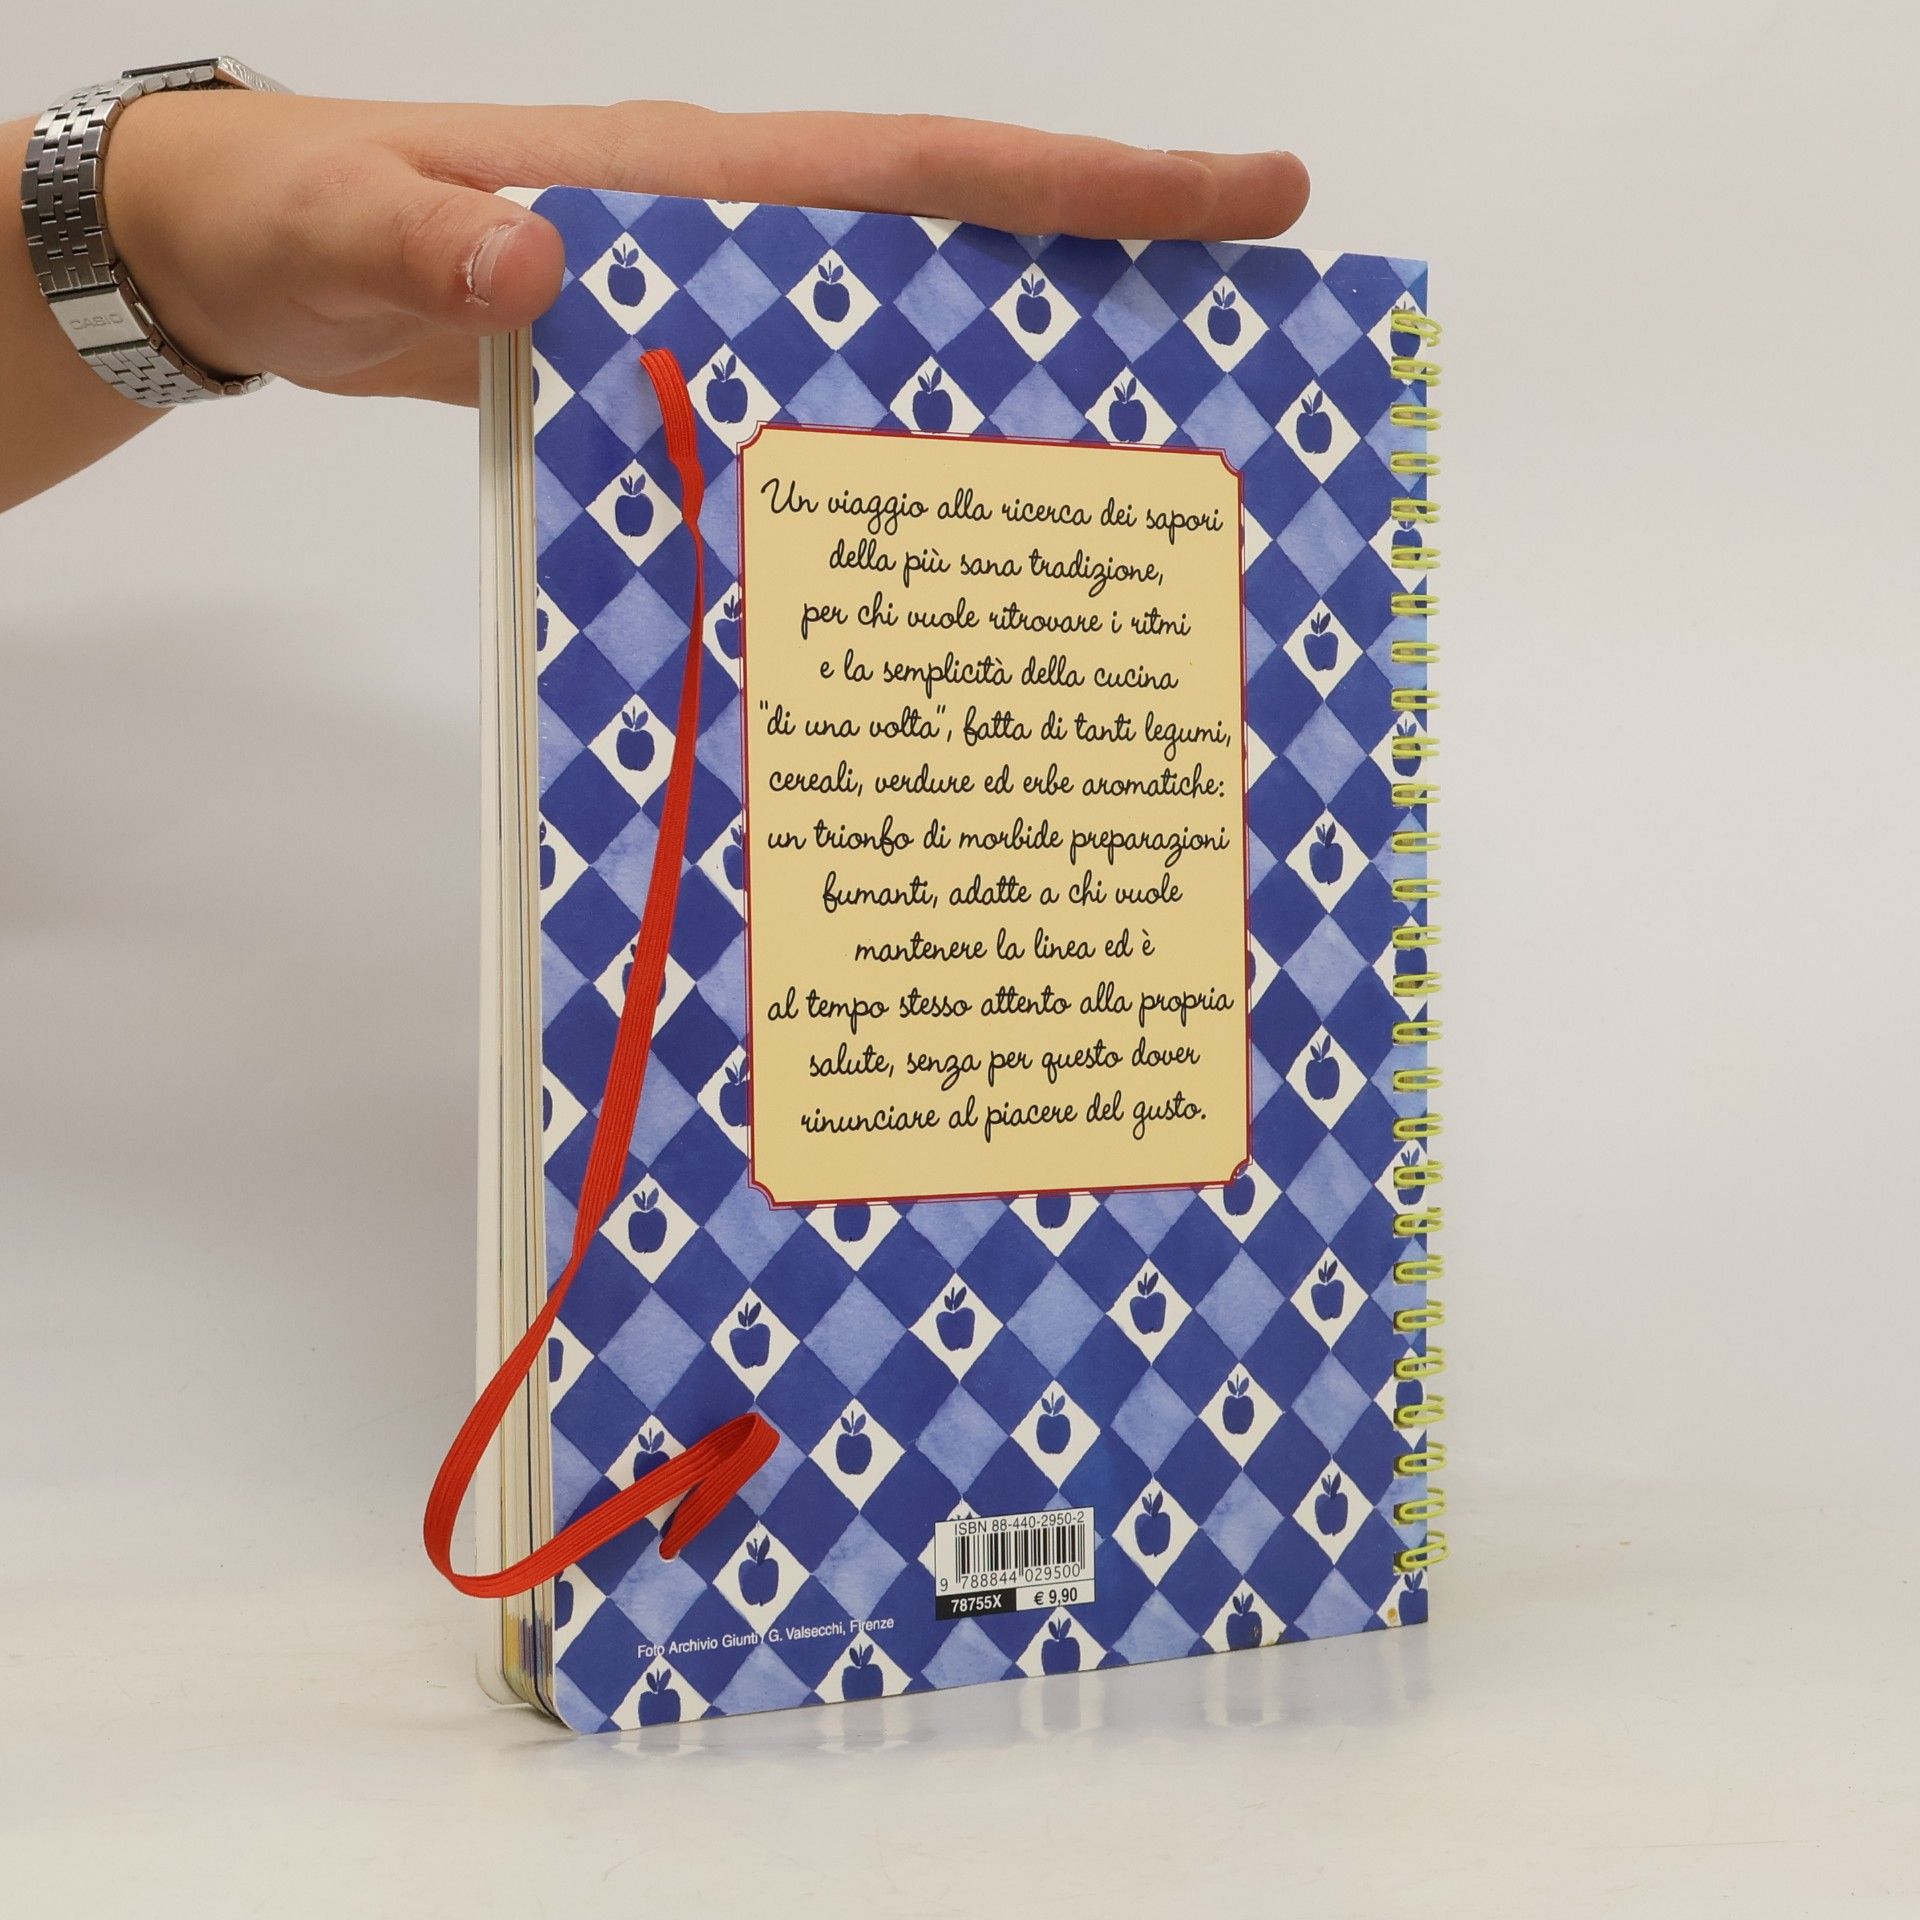 CASIO
Un viaggio alla ricerca dei sapori
della più sana tradizione,
per chi vuole ritrovare i ritmi
e la semplicità della cucina
"di una volta", fatta di tanti legumi,
cereali, verdure ed erbe aromatiche:
un trionfo di morbide preparazioni
fumanti, adatte a chi vuole
mantenere la linea ed è
al tempo stesso attento alla propria
salute, senza per questo dover
rinunciare al piacere del gusto.
ISBN 88-440-2950-2
9 788844 029500
78755X € 9,90
Foto Archivio Giunti / G. Valsecchi, Firenze